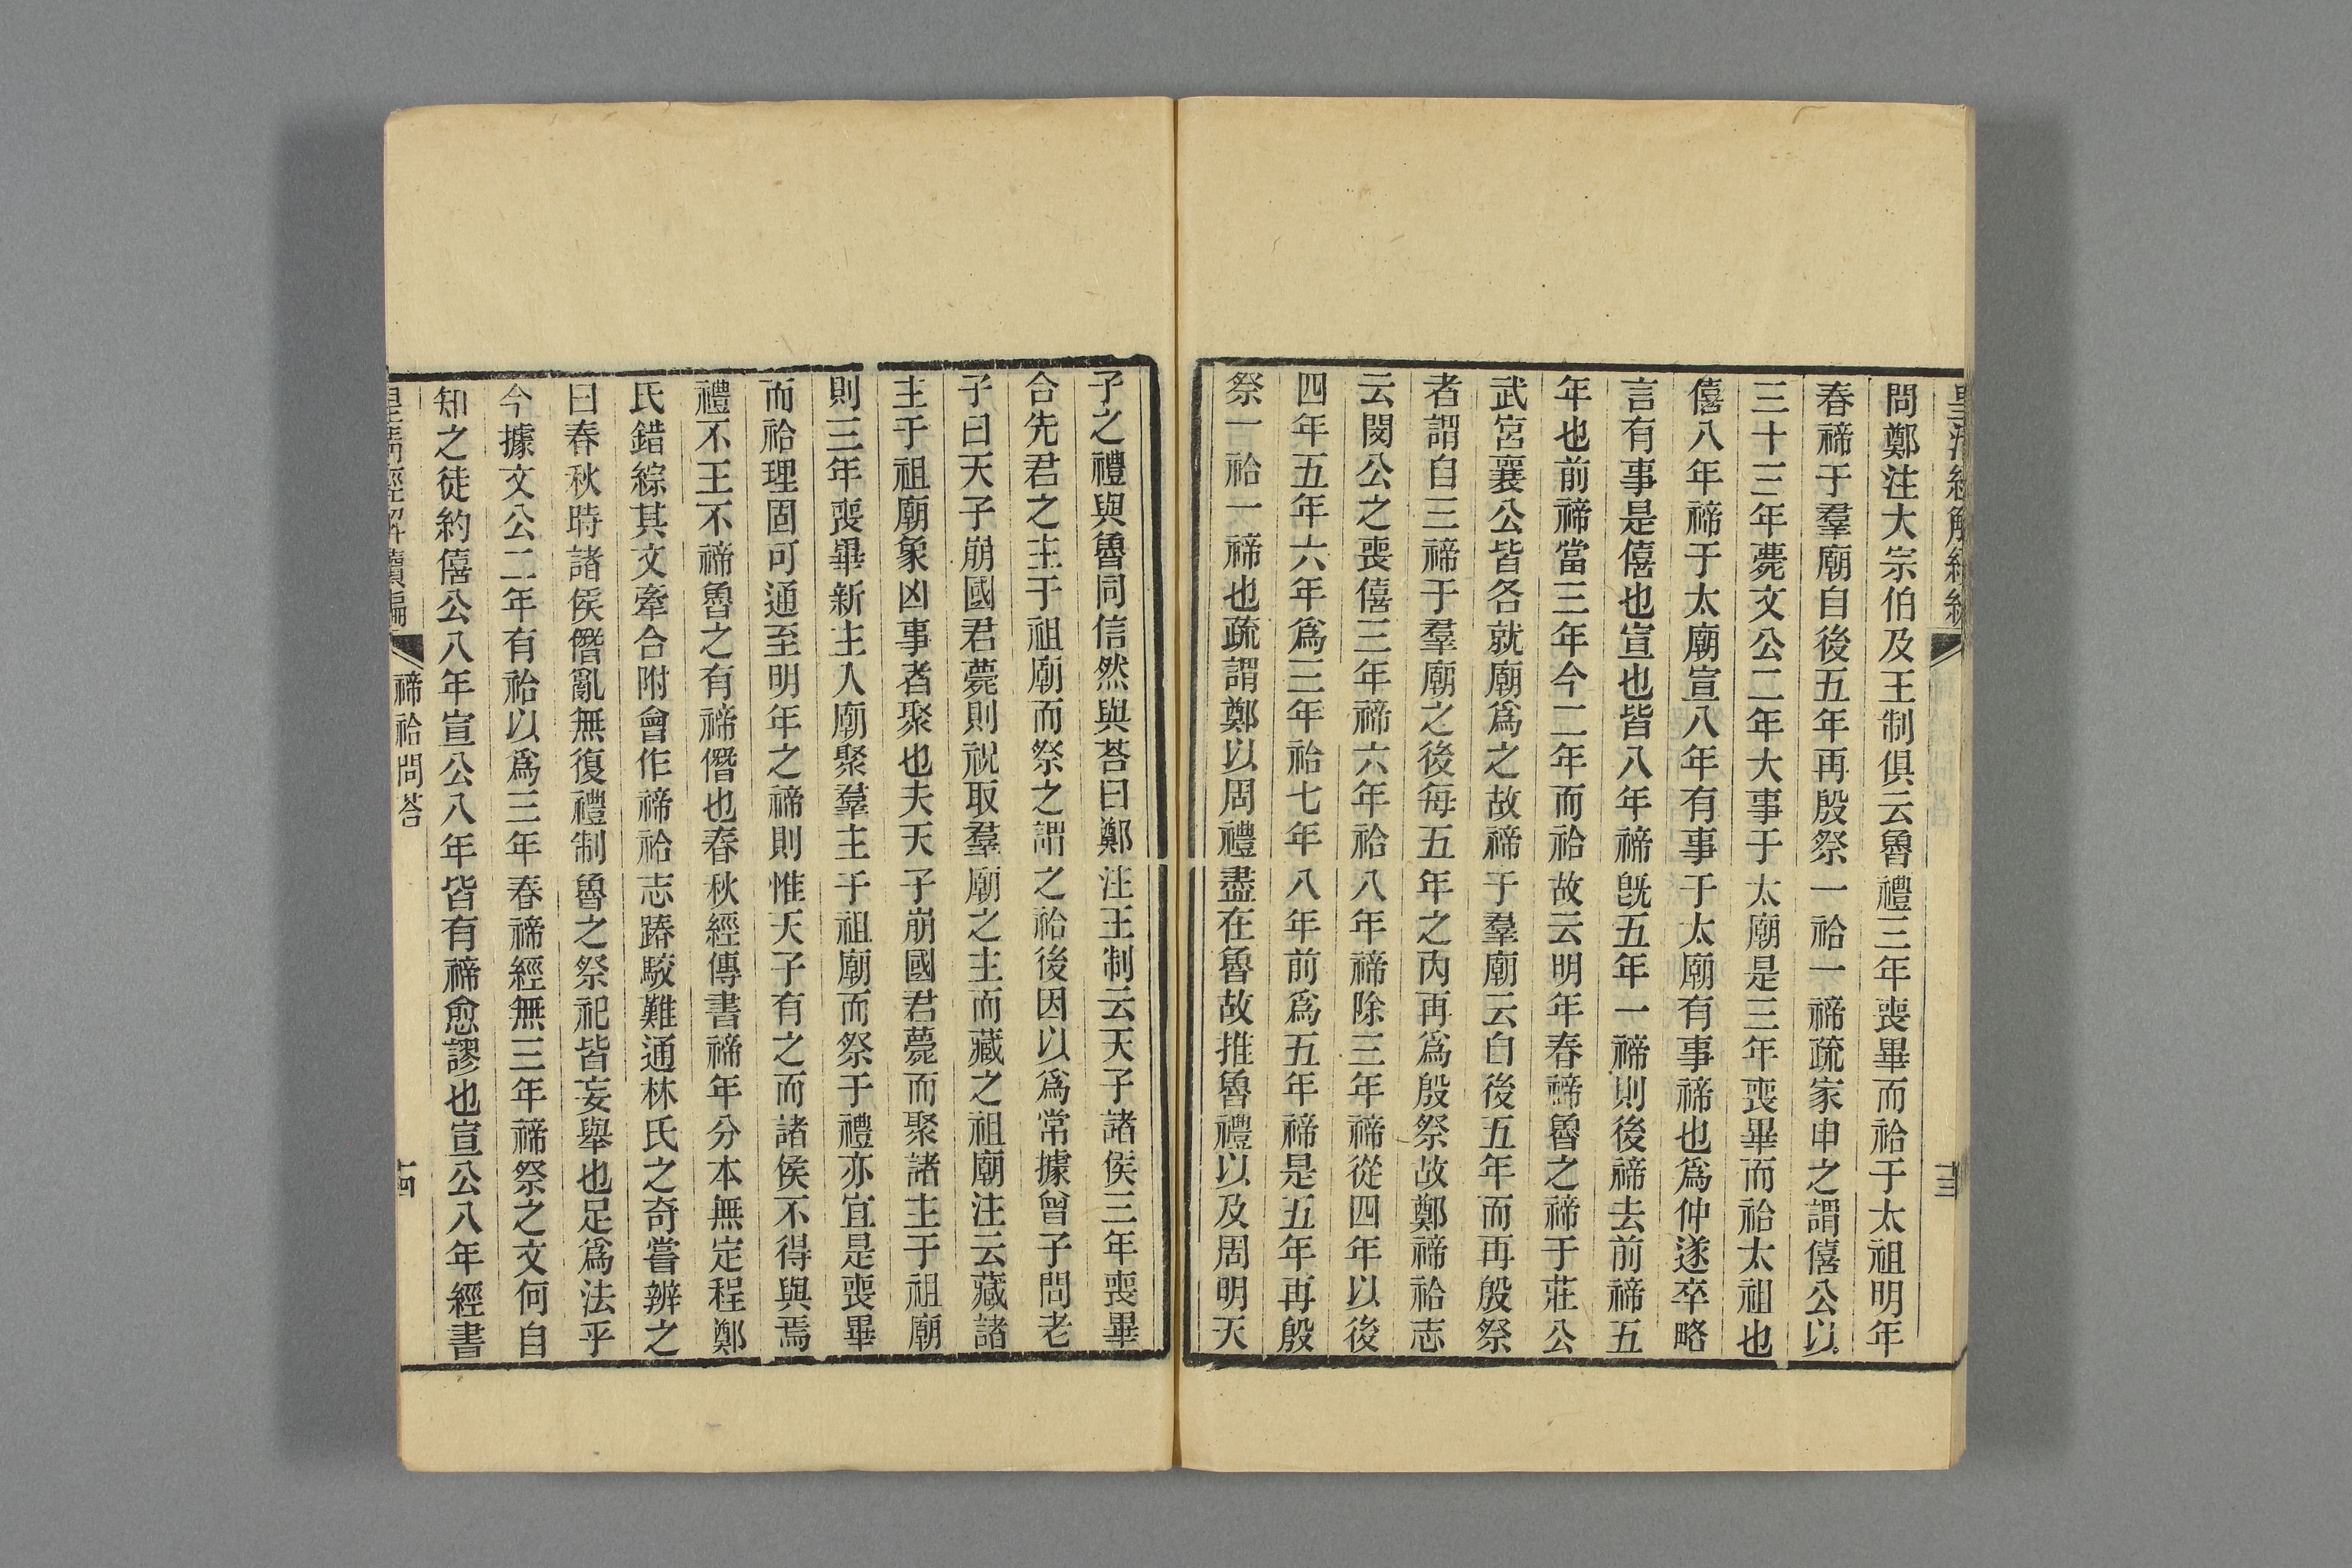 問鄭注大宗伯及王制俱云魯禮三年喪畢而祫于太祖明年
春禘于羣廟自後五年再殷祭一祫一禘疏家申之謂僖公以
三十三年薨文公二年大事于太廟是三年喪畢而祫太祖也
僖八年禘于太廟宣八年有事于太廟有事禘也爲仲遂卒略
言有事是僖也宣也皆八年禘旣五年一禘則後禘去前禘五
年也前禘當三年今二年而祫故云明年春禘魯之禘于莊公
武宮襄公皆各就廟爲之故禘于羣廟云自後五年而再殷祭
者謂自三禘于羣廟之後每五年之內再爲殷祭故鄭禘祫志
云閔公之喪僖三年禘六年祫八年禘除三年禘從四年以後
四年五年六年爲三年祫七年八年前爲五年禘是五年再殷
祭一祫一禘也疏謂鄭以周禮盡在魯故推魯禮以及周明天
子之禮與魯同信然與荅曰鄭注王制云天子諸侯三年喪畢
合先君之主于祖廟而祭之謂之祫後因以爲常據曾子問老
子曰天子崩國君薨則祝取羣廟之主而藏之祖廟注云藏諸
主于祖廟象凶事者聚也夫天子崩國君薨而聚諸主于祖廟
則三年喪畢新主人廟聚羣主于祖廟而祭于禮亦宜是喪畢
而祫理固可通至明年之禘則惟天子有之而諸侯不得與焉
禮不王不禘魯之有禘僭也春秋經傳書禘年分本無定程鄭
氏錯綜其文牽合附會作禘祫志踳駮難通林氏之奇嘗辨之
曰春秋時諸侯僭亂無復禮制魯之祭祀皆妄舉也足爲法乎
今據文公二年有祫以爲三年春禘經無三年禘祭之文何自
知之徒約僖公八年宣公八年皆有禘愈謬也宣公八年經書
皇淸經解續編 禘祫問荅 十四